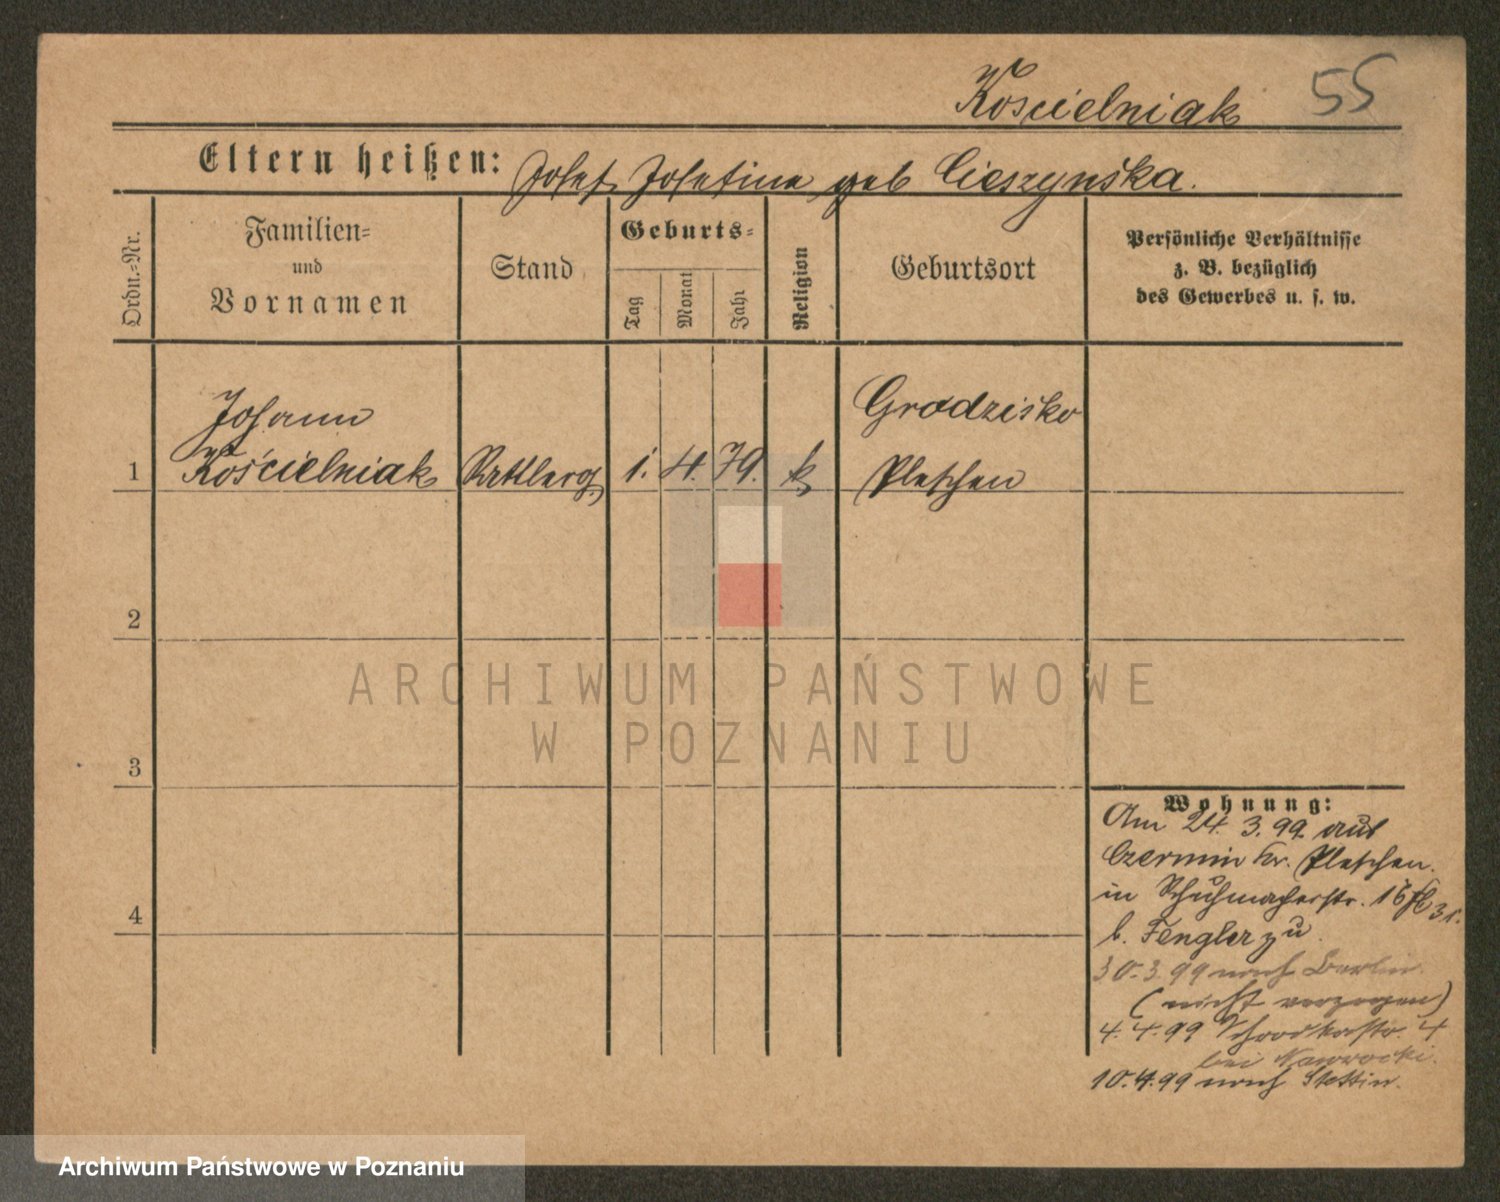 Kościelniak 55
Eltern heißen: Josef, Josefina geb Cieszynska.
Ordn.=Nr.
Familien=
und
Vornamen
Stand
Geburts=
Tag
Monat
Jahr
Religion
Geburtsort
Persönliche Verhältnisse
z. B. bezüglich
des Gewerbes u. s. w.
Johann Grodzisko
1 Kościelniak Sattlerg. 1. 4. 79. k Pleschen
2
ARCHIWUM PAŃSTWOWE
W POZNANIU
3
Wohnung:
Am 24. 3. 99 aus
Czermin Kr. Pleschen.
in Schuhmacherstr. 16
4
b. Fengler zu
30.3.99 nach Berlin.
(nicht verzogen)
4. 4. 99 Schrodkastr. 4
bei Nawrocki.
10.4.99 nach Stettin.
Archiwum Państwowe w Poznaniu